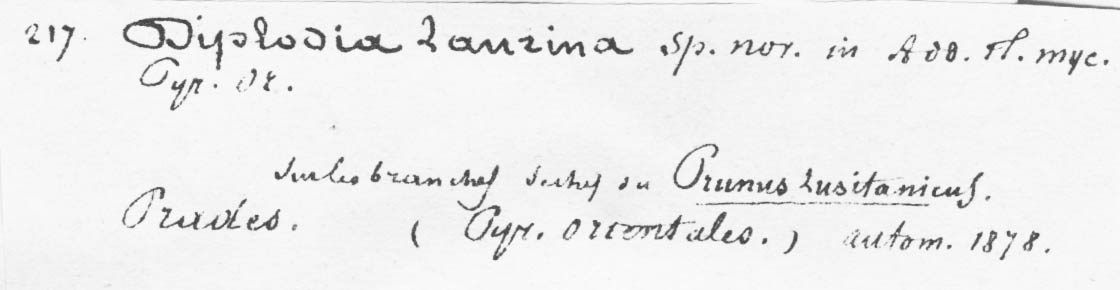 217. Diplodia Laurina sp. nov. in Add. fl. myc.
Pyr. Or.
Sur les branches sèches du Prunus Lusitanicus.
Prades. ( Pyr. Orientales. ) autom. 1878.